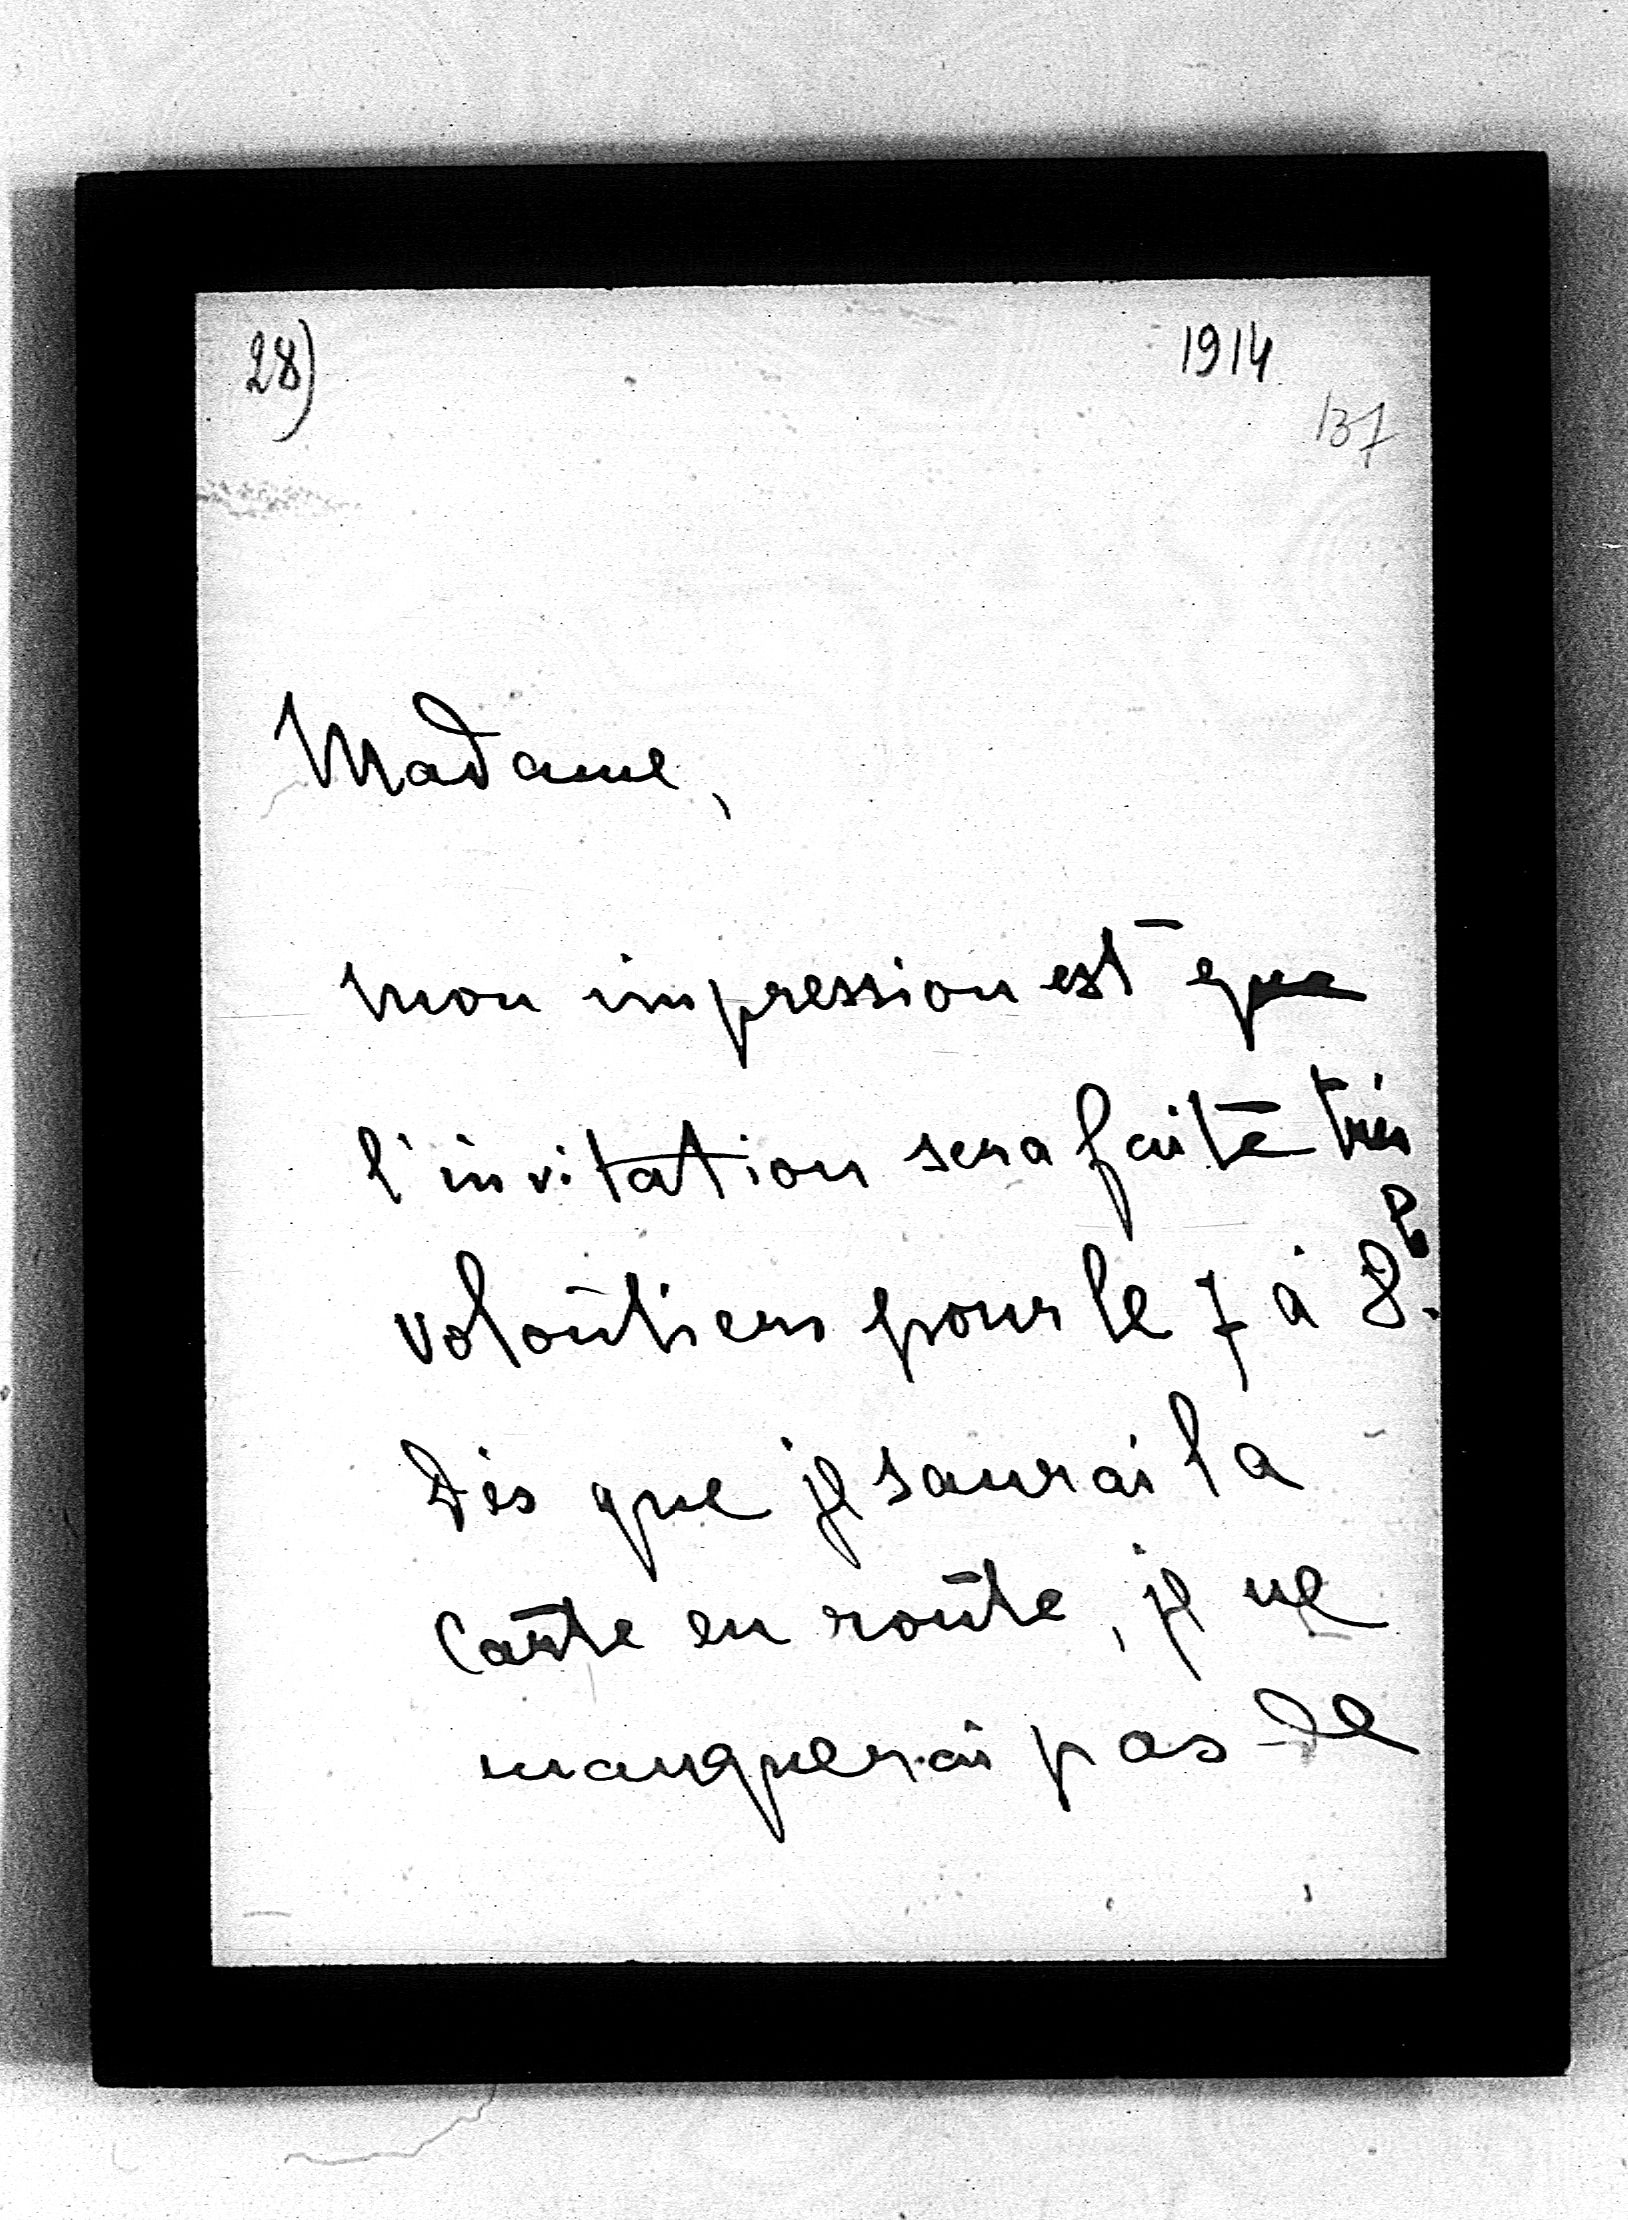 28)
1914
137
Madame,
mon impression est que
l'invitation sera faite très
volontiers pour le 7 à 8h.
Dès que je saurai la
carte en route, je ne
manquerai pas de